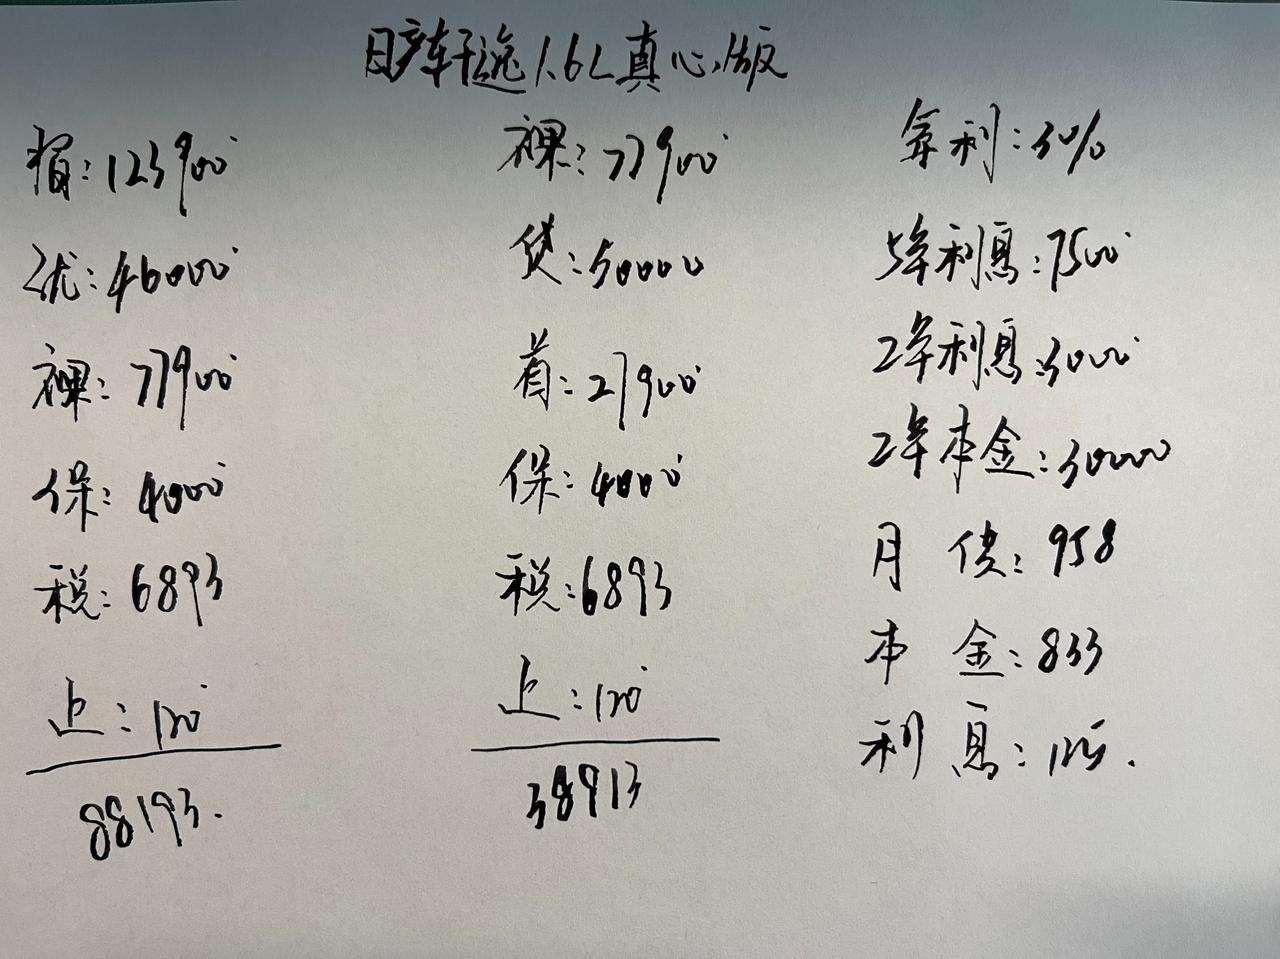 日产轩逸1.6L真心版
指:123900
优:46000
裸:77900
保:4000
税:6893
上:120
88193.
裸:77900
贷:50000
首:27900
保:4000
税:6893
上:120
38913
年利:3%
5年利息:7500
2年利息:3000
2年本金:30000
月供:958
本金:833
利息:125.